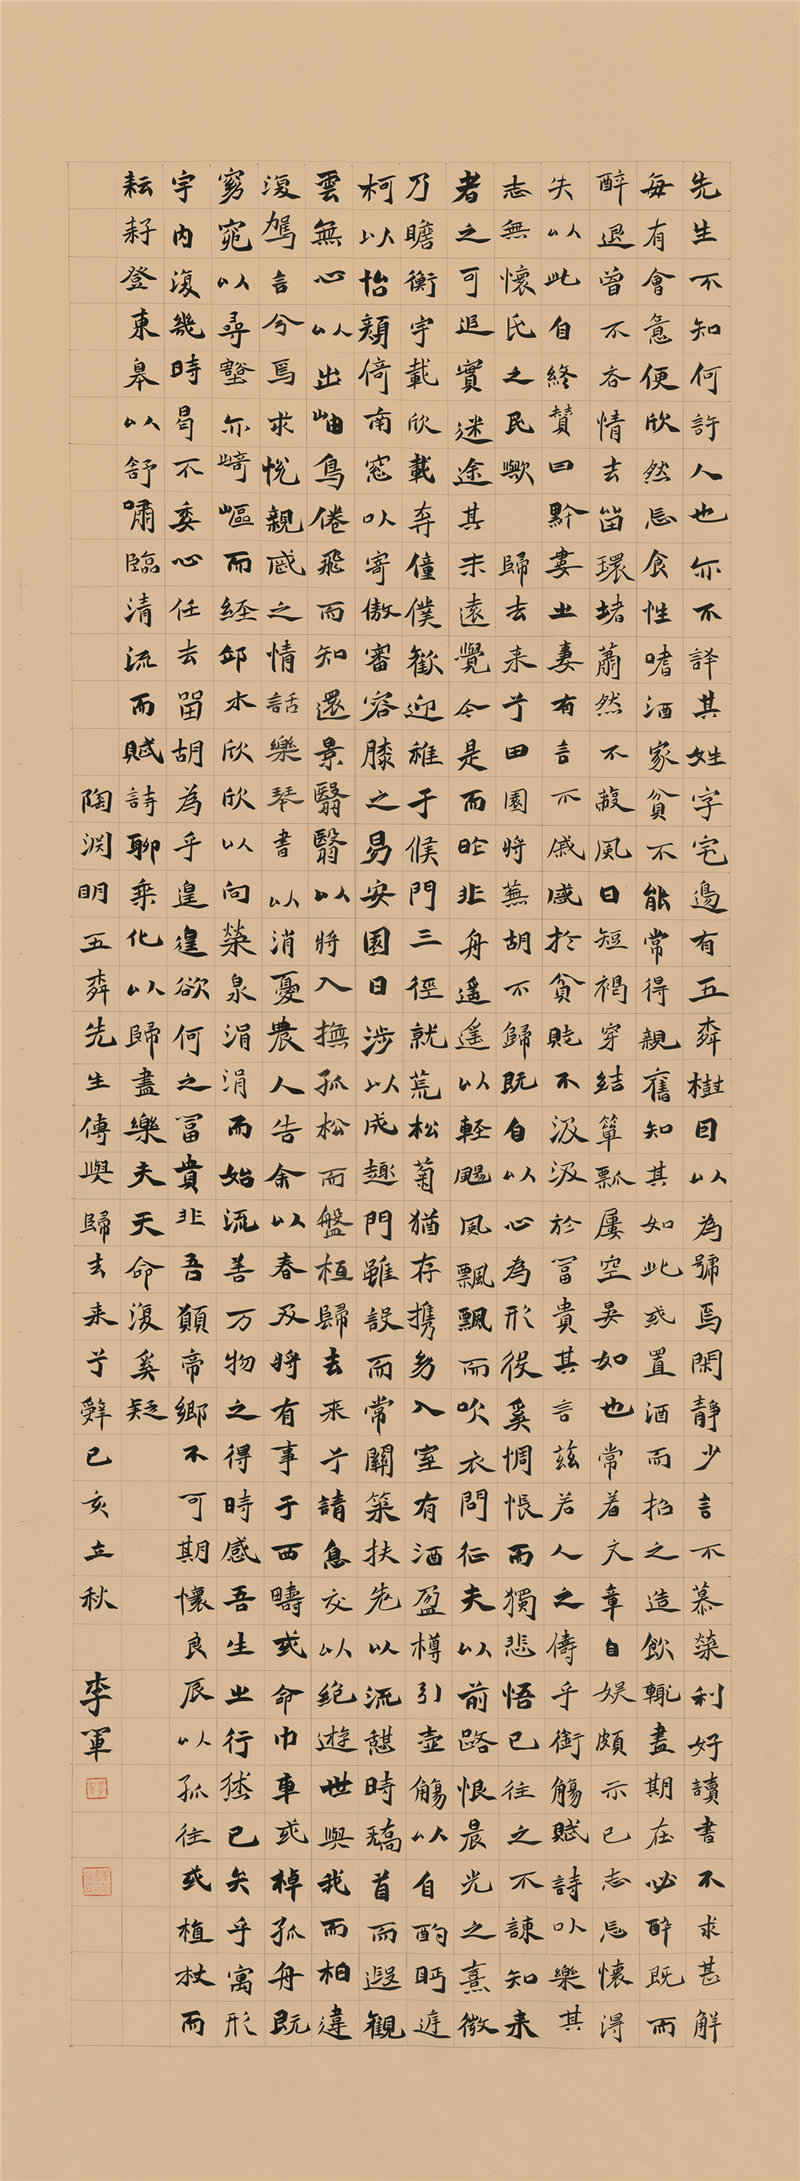 先生不知何許人也亦不詳其姓字宅邊有五柳樹因以為號焉閑靜少言不慕榮利好讀書不求甚解
每有會意便欣然忘食性嗜酒家貧不能常得親舊知其如此或置酒而招之造飲輒盡期在必醉既而
醉退曾不吝情去留環堵蕭然不蔽風日短褐穿結簞瓢屢空晏如也常着文章自娛頗示己志忘懷得
失以此自終贊曰黔婁之妻有言不戚戚於貧賤不汲汲於富貴其言茲若人之儔乎銜觴賦詩以樂其
志無懷氏之民歟 歸去来兮田園將蕪胡不歸既自以心為形役奚惆悵而獨悲悟已往之不諫知来
者之可追實迷途其未遠覺今是而昨非舟遙遙以輕颺風飄飄而吹衣問征夫以前路恨晨光之熹微
乃瞻衡宇載欣載奔僮僕歡迎稚子候門三徑就荒松菊猶存携幼入室有酒盈樽引壺觴以自酌眄庭
柯以怡顏倚南窓以寄傲審容膝之易安園日涉以成趣門雖設而常關策扶老以流憩時矯首而遐觀
雲無心以出岫鳥倦飛而知還景翳翳以將入撫孤松而盤桓歸去来兮請息交以絕遊世與我而相違
復駕言兮焉求悅親戚之情話樂琴書以消憂農人告余以春及將有事于西疇或命巾車或棹孤舟既
窈窕以尋壑亦崎嶇而經邱木欣欣以向榮泉涓涓而始流善万物之得時感吾生之行休已矣乎寓形
宇內復幾時曷不委心任去留胡為乎遑遑欲何之富貴非吾願帝鄉不可期懷良辰以孤往或植杖而
耘耔登東皋以舒嘯臨清流而賦詩聊乘化以歸盡樂夫天命復奚疑
陶渕明五柳先生傳與歸去来兮辭己亥立秋 李軍